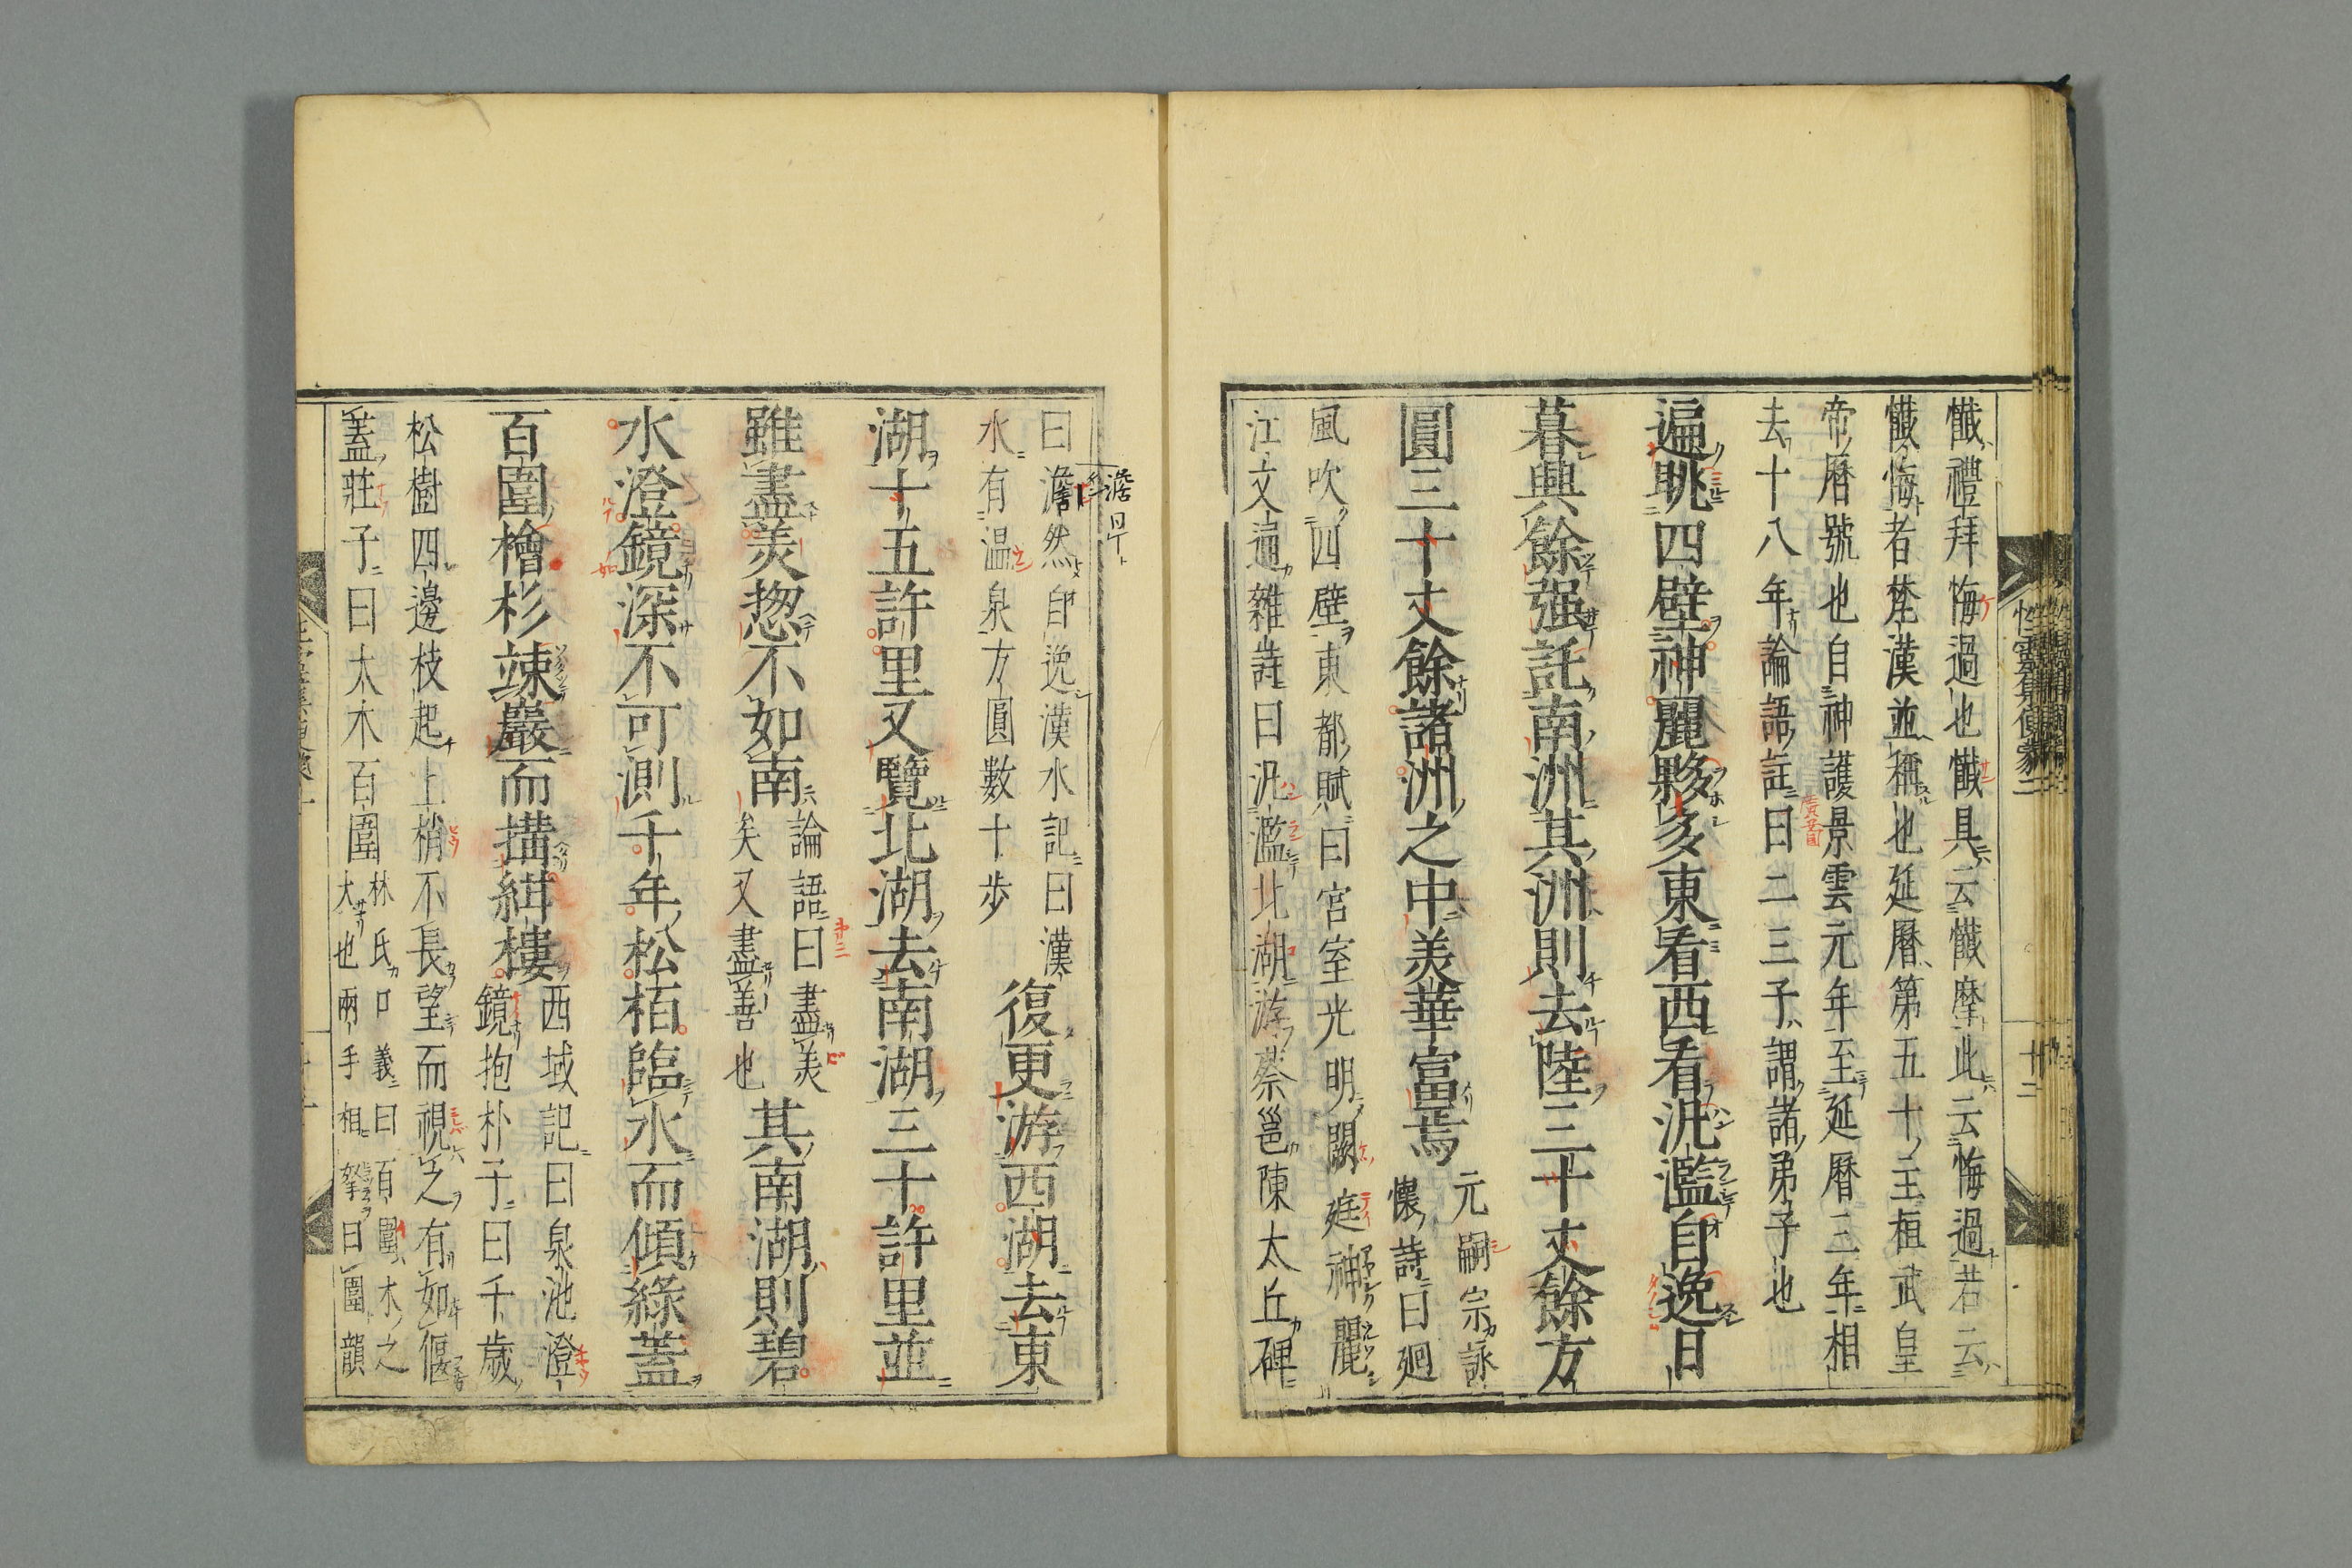 懺禮拜悔過也懺具云懺摩此云悔過若云
懺悔者梵漢並稱也延曆第五十主桓武皇
帝曆號也自神護景雲元年至延曆三年相
去十八年論語註曰二三子謂諸弟子也
遍眺四壁神麗夥多東看西看汎濫自逸日
暮興餘强託南洲其洲則去陸三十丈餘方
圓三十丈餘諸洲之中美華富焉
元嗣宗詠
懷詩曰廻
風吹四壁東都賦曰宮室光明闕庭神麗
江文通雜詩曰汎濫北湖游蔡邕陳太丘碑
性靈集便蒙二
十二
曰澹然自逸漢水記曰漢
水有温泉方圓數十步
澹
復更游西湖去東
湖十五許里又覽北湖去南湖三十許里並
雖盡美惣不如南
論語曰盡美
矣又盡善也
其南湖則碧
水澄鏡深不可測千年松栢臨水而傾綠蓋
百圍檜杉竦巖而搆紺樓
西域記曰泉池澄
鏡抱朴子曰千歲
松樹四邊枝起上梢不長望而視之有如偃
蓋莊子曰大木百圍
林氏口義曰百圍木之
大也兩手相拏曰圍韻